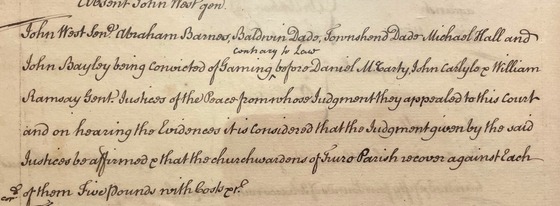 Absent John West gen.
John West Senr. Abraham Barnes, Baldwin Dade, Townshend Dade Michael Hall and
contrary to Law
John Bayley being convicted of Gaming ‸ before Daniel McCarty, John Carlyle & William
Ramsay Gent. Justices of the Peace from whose Judgment they appealed to this Court
and on hearing the Evidences it is considered that the Judgment given by the said
Justices be affirmed & that the churchwardens of Truro Parish recover against Each
of them Five Pounds with Costs &c.